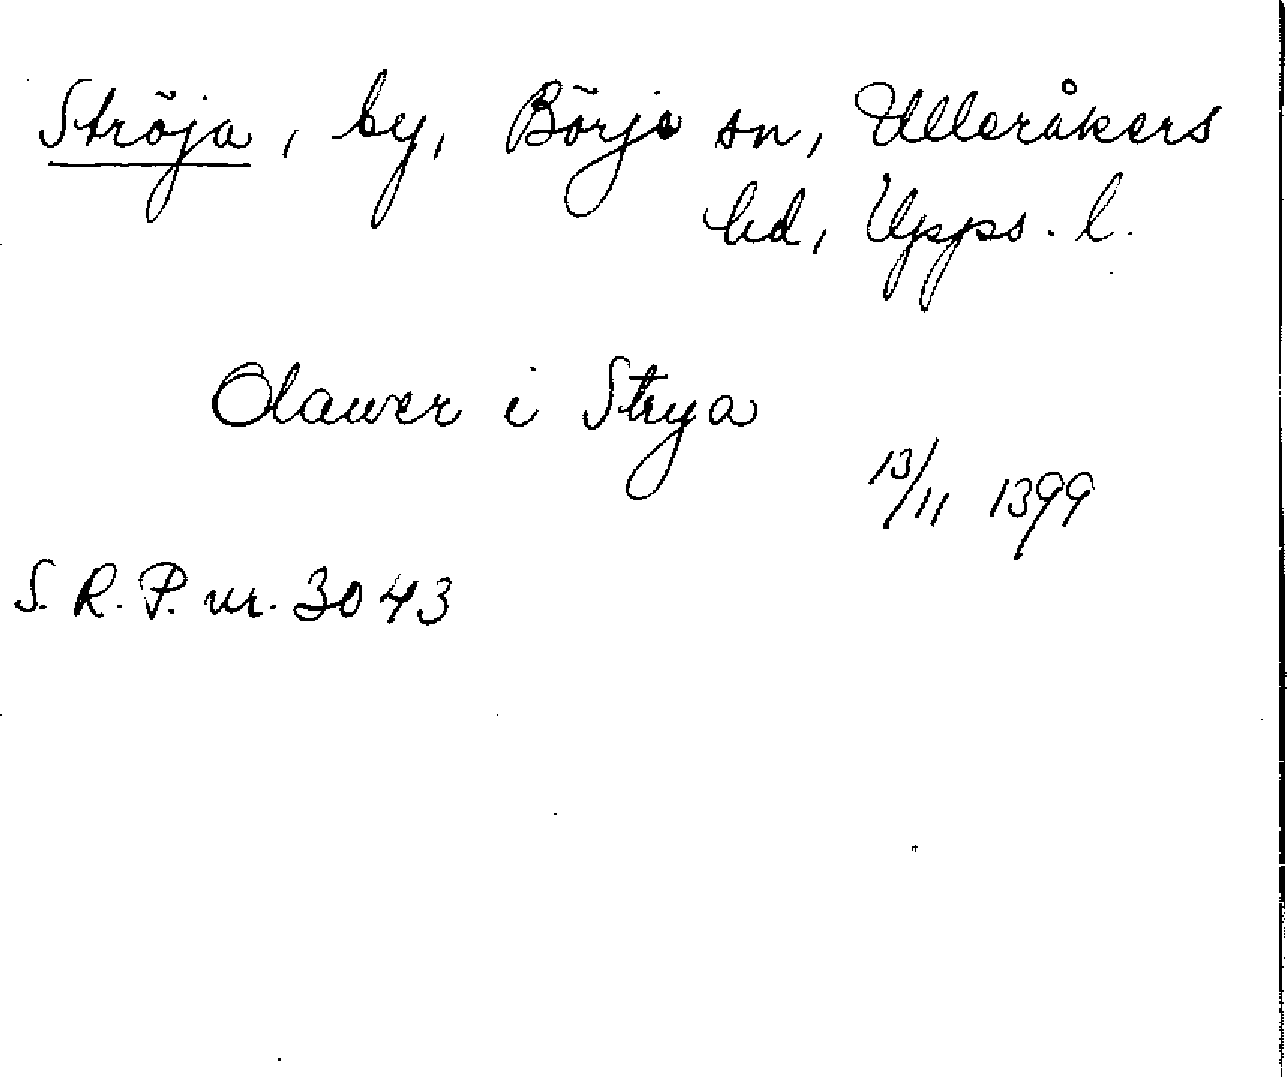 Ströja, by, Börje sn, Ulleråkers
hd, Upps. l.
Olawer i Strya
13/11 1399
S. R. P. nr. 3043